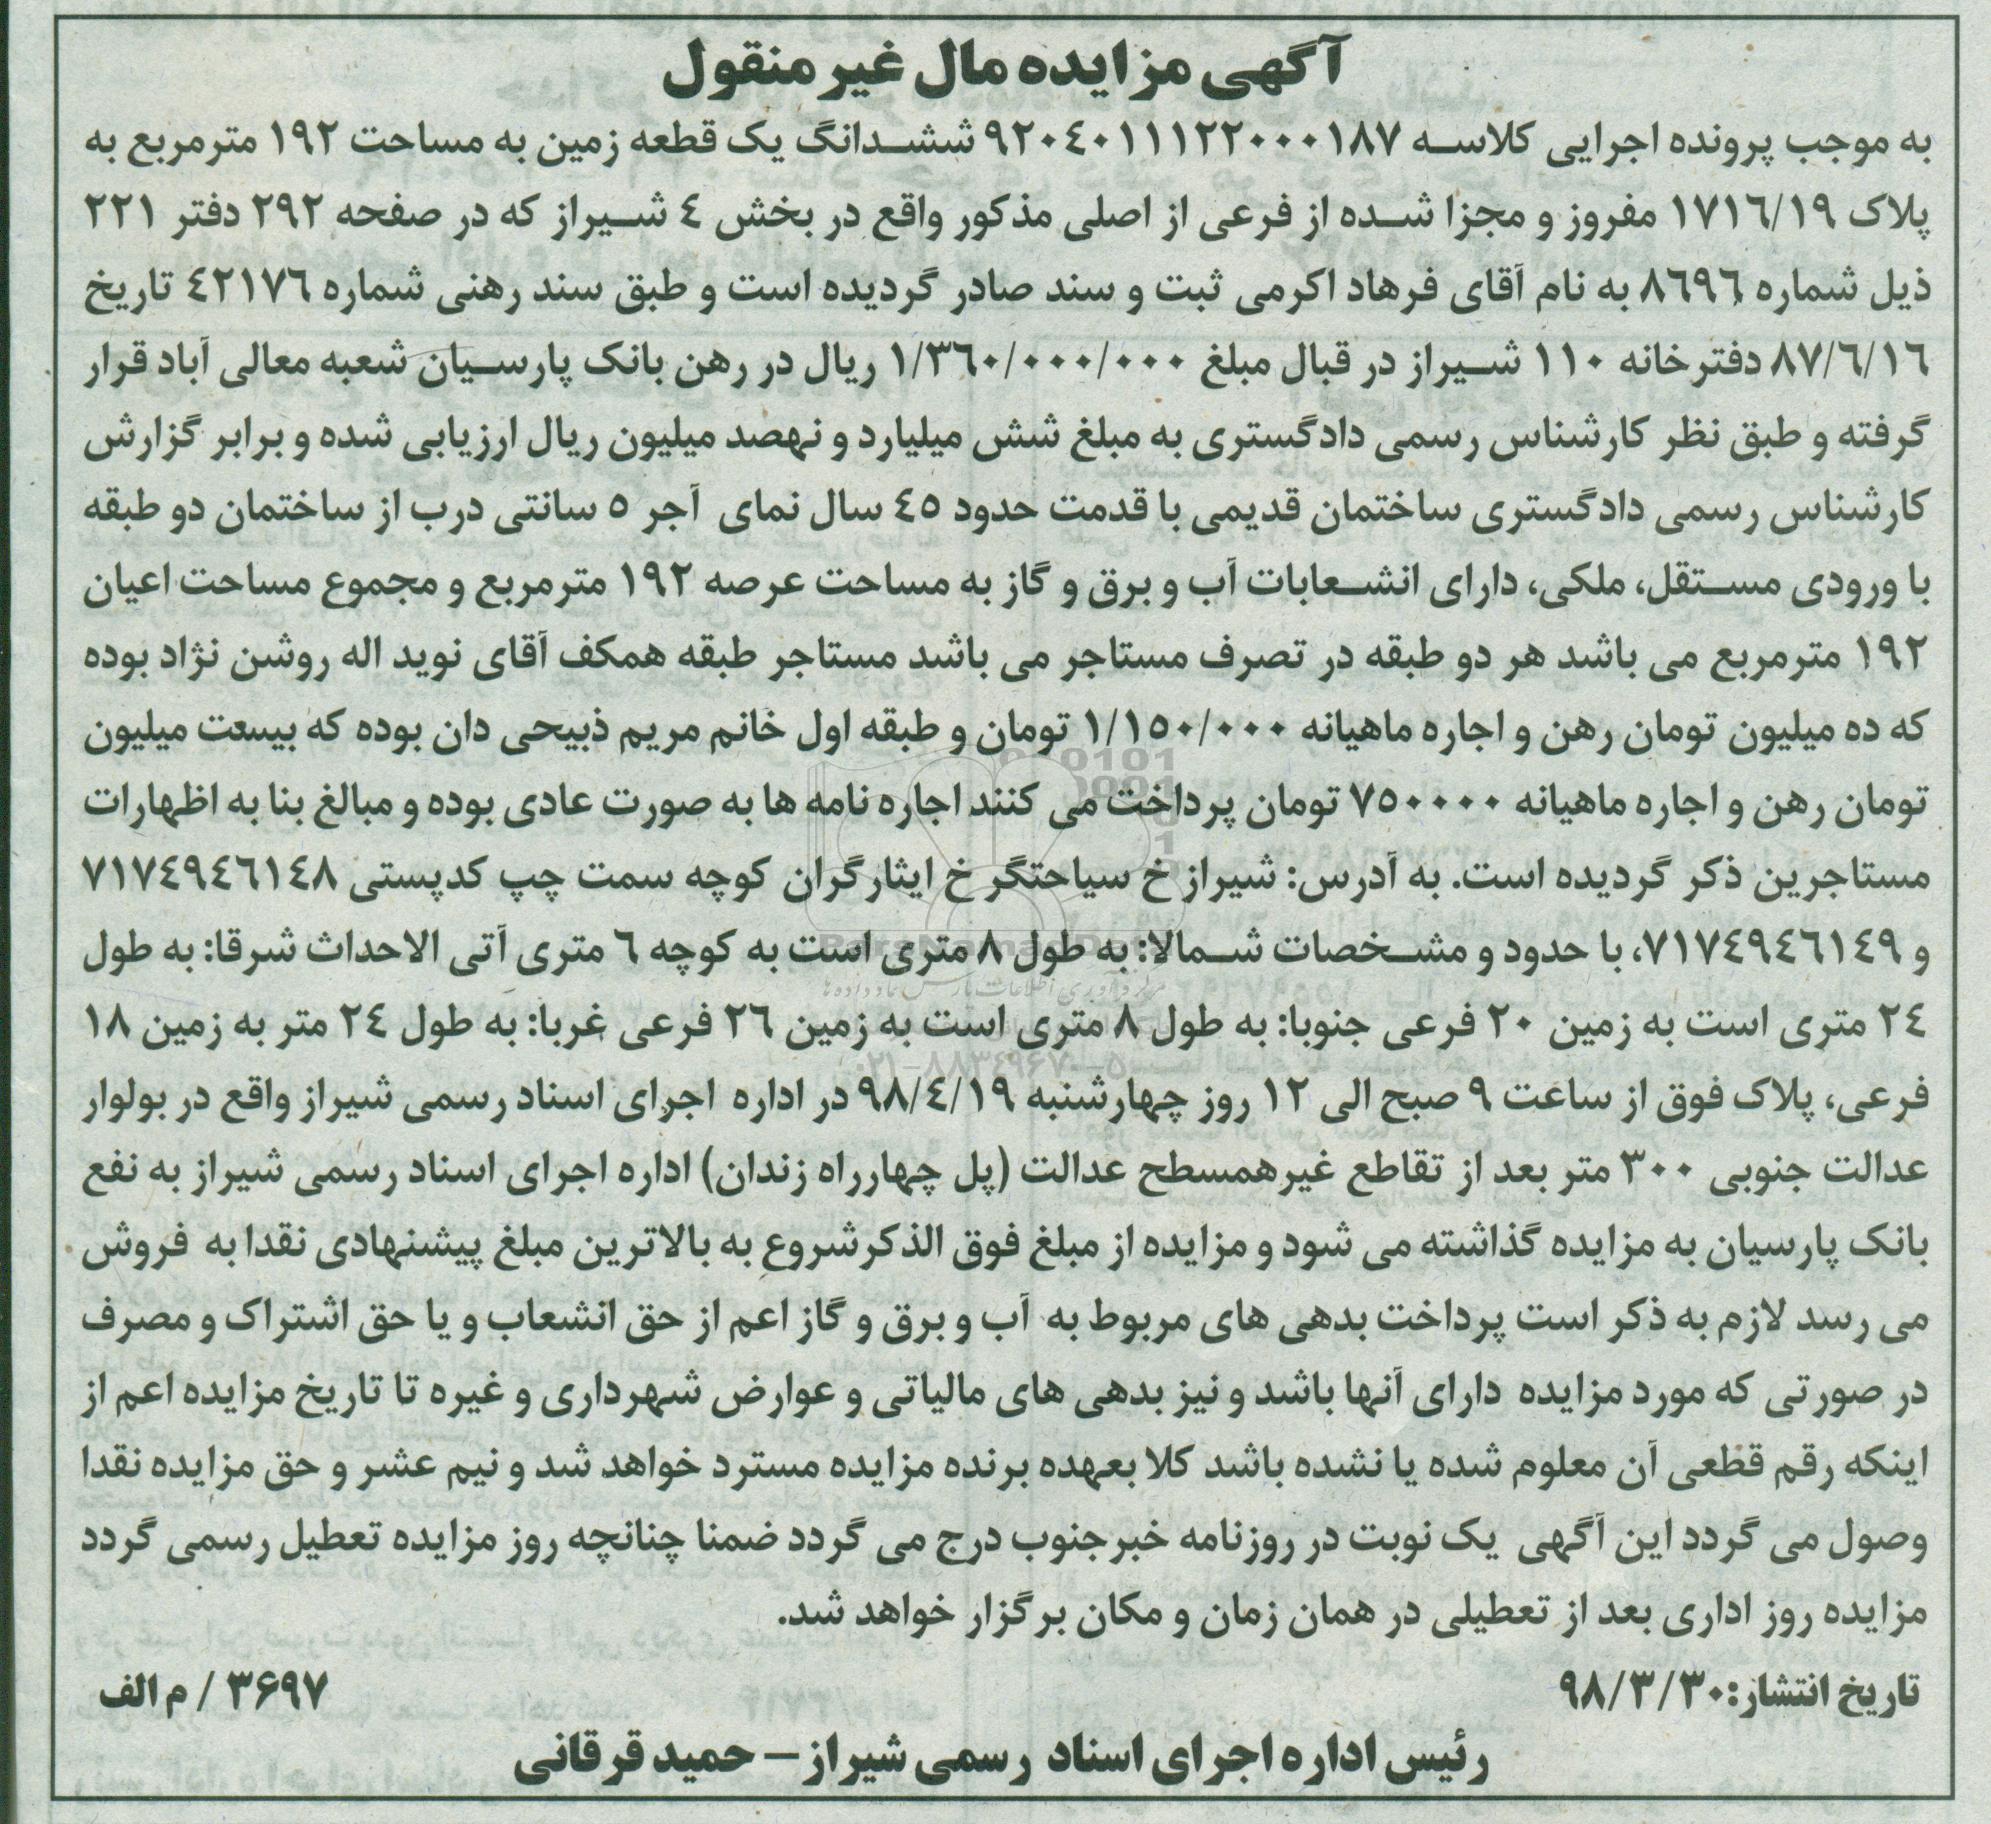 آگهی مزایده مال غیر منقول
به موجب پرونده اجرایی کلاسه ۹۲۰٤۰۱۱۱۲۲۰۰۰۱۸۷ ششدانگ یک قطعه زمین به مساحت ۱۹۲ مترمربع به
پلاک ۱۷۱٦/۱۹ مفروز و مجزا شده از فرعی از اصلی مذکور واقع در بخش ٤ شیراز که در صفحه ۲۹۲ دفتر ۲۲۱
ذیل شماره ۸٦۹٦ به نام آقای فرهاد اکرمی ثبت و سند صادر گردیده است و طبق سند رهنی شماره ٤۲۱۷٦ تاریخ
۸۷/٦/۱٦ دفترخانه ۱۱۰ شیراز در قبال مبلغ ۱/۳٦۰/۰۰۰/۰۰۰ ریال در رهن بانک پارسیان شعبه معالی آباد قرار
گرفته و طبق نظر کارشناس رسمی دادگستری به مبلغ شش میلیارد و نهصد میلیون ریال ارزیابی شده و برابر گزارش
کارشناس رسمی دادگستری ساختمان قدیمی با قدمت حدود ٤٥ سال نمای آجر ٥ سانتی درب از ساختمان دو طبقه
با ورودی مستقل، ملکی، دارای انشعابات آب و برق و گاز به مساحت عرصه ۱۹۲ مترمربع و مجموع مساحت اعیان
۱۹۲ مترمربع می باشد هر دو طبقه در تصرف مستاجر می باشد مستاجر طبقه همکف آقای نوید اله روشن نژاد بوده
که ده میلیون تومان رهن و اجاره ماهیانه ۱/۱٥۰/۰۰۰ تومان و طبقه اول خانم مریم ذبیحی دان بوده که بیست میلیون
تومان رهن و اجاره ماهیانه ۷٥۰۰۰۰ تومان پرداخت می کنند اجاره نامه ها به صورت عادی بوده و مبالغ بنا به اظهارات
مستاجرین ذکر گردیده است. به آدرس: شیراز خ سیاحتگر خ ایثارگران کوچه سمت چپ کدپستی ۷۱۷٤۹٤٦۱٤۸
و ۷۱۷٤۹٤٦۱٤۹، با حدود و مشخصات شمالا: به طول ۸ متری است به کوچه ٦ متری آتی الاحداث شرقا: به طول
۲٤ متری است به زمین ۲۰ فرعی جنوبا: به طول ۸ متری است به زمین ۲٦ فرعی غربا: به طول ۲٤ متر به زمین ۱۸
فرعی، پلاک فوق از ساعت ۹ صبح الی ۱۲ روز چهارشنبه ۹۸/٤/۱۹ در اداره اجرای اسناد رسمی شیراز واقع در بولوار
عدالت جنوبی ۳۰۰ متر بعد از تقاطع غیرهمسطح عدالت (پل چهارراه زندان) اداره اجرای اسناد رسمی شیراز به نفع
بانک پارسیان به مزایده گذاشته می شود و مزایده از مبلغ فوق الذکرشروع به بالاترین مبلغ پیشنهادی نقدا به فروش
می رسد لازم به ذکر است پرداخت بدهی های مربوط به آب و برق و گاز اعم از حق انشعاب و یا حق اشتراک و مصرف
در صورتی که مورد مزایده دارای آنها باشد و نیز بدهی های مالیاتی و عوارض شهرداری و غیره تا تاریخ مزایده اعم از
اینکه رقم قطعی آن معلوم شده یا نشده باشد کلا بعهده برنده مزایده مسترد خواهد شد و نیم عشر و حق مزایده نقدا
وصول می گردد این آگهی یک نوبت در روزنامه خبرجنوب درج می گردد ضمنا چنانچه روز مزایده تعطیل رسمی گردد
مزایده روز اداری بعد از تعطیلی در همان زمان و مکان برگزار خواهد شد.
تاریخ انتشار: ۹۸/۳/۳۰
۳۶۹۷ / م الف
رئیس اداره اجرای اسناد رسمی شیراز – حمید قرقانی